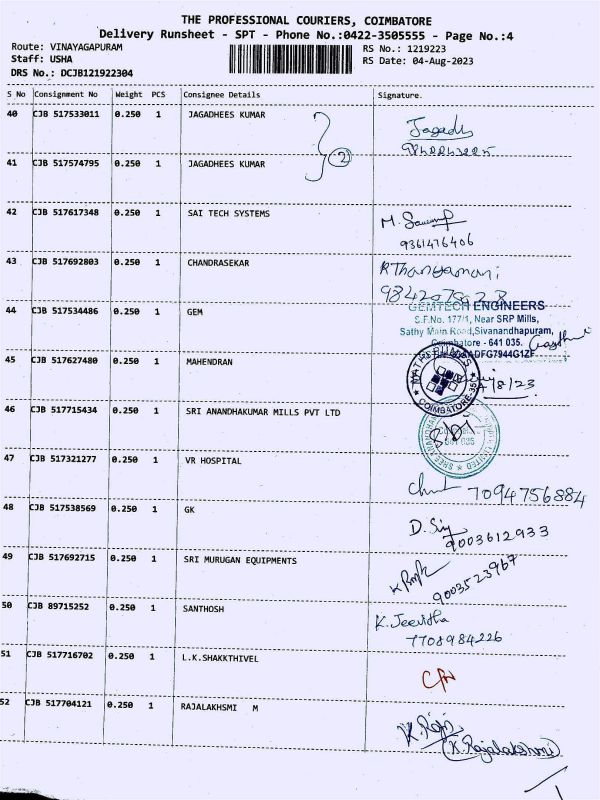 THE PROFESSIONAL COURIERS, COIMBATORE
Delivery Runsheet - SPT - Phone No.:0422-3505555 - Page No.:4
Route: VINAYAGAPURAM
Staff: USHA
DRS No.: DCJB121922304
RS No.: 1219223
RS Date: 04-Aug-2023
S No Consignment No Weight PCS Consignee Details Signature.
40 CJB 517533011 0.250 1 JAGADHEES KUMAR
Jagadh
2
41 CJB 517574795 0.250 1 JAGADHEES KUMAR
42 CJB 517617348 0.250 1 SAI TECH SYSTEMS
M.
9361476406
43 CJB 517692803 0.250 1 CHANDRASEKAR
R Thangamani
44 CJB 517534486 0.250 1 GEM
GEMTECH ENGINEERS
S.F.No. 177/1, Near SRP Mills,
Sathy Main Road,Sivanandhapuram,
Coimbatore - 641 035.
45 CJB 517627480 0.250 1 MAHENDRAN
COIMBATORE-35
4/8/23
46 CJB 517715434 0.250 1 SRI ANANDHAKUMAR MILLS PVT LTD
47 CJB 517321277 0.250 1 VR HOSPITAL
7094756884
48 CJB 517538569 0.250 1 GK
9003612933
49 CJB 517692715 0.250 1 SRI MURUGAN EQUIPMENTS
9003523967
50 CJB 89715252 0.250 1 SANTHOSH
K. Jeevitha
7708984226
51 CJB 517716702 0.250 1 L.K.SHAKKTHIVEL
52 CJB 517704121 0.250 1 RAJALAKHSMI M
K. Raji
(K.Rajalakshmi)